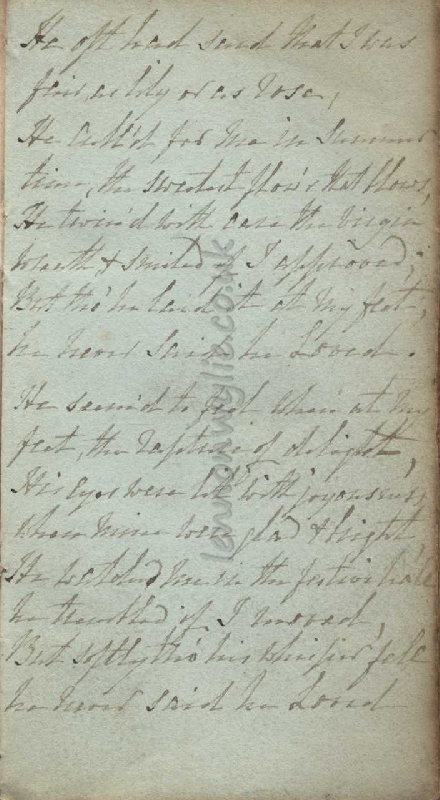 He oft had said that I was
fair as lily or as rose,
He cull'd for me in summer
time, the sweetest flow'r that blows,
He twin'd with care the virgin
wreath & smiled if I approved;
But tho' he laid it at my feet,
he never said he Loved.
He seem'd to feel when at my
feet, the rapture of delight,
His eyes were lit with joyousness,
when mine were glad & bright,
He watched me in the festive hall
he trembled if I moved,
But softly tho' his whisper fell
he never said he Loved
lenwylie.co.uk